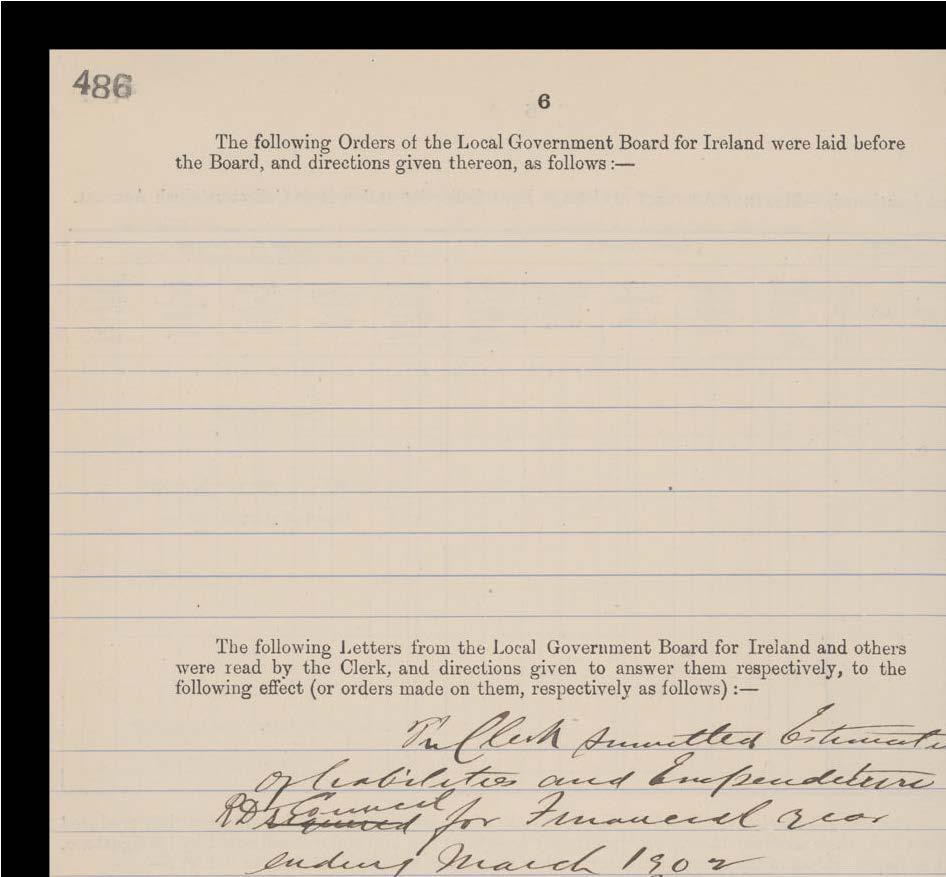 486
6
The following Orders of the Local Government Board for Ireland were laid before
the Board, and directions given thereon, as follows :—
The following Letters from the Local Government Board for Ireland and others
were read by the Clerk, and directions given to answer them respectively, to the
following effect (or orders made on them, respectively as follows) :—
The Clerk submitted Estimate
of liabilities and Expenditure
RD Council for Financial year
ending March 1902